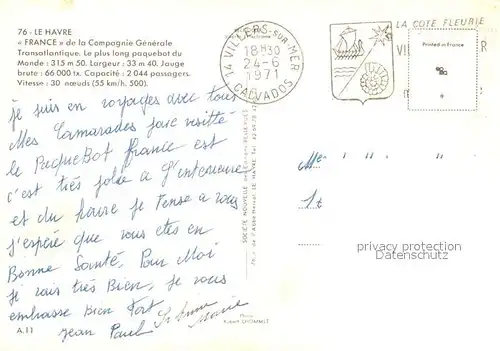 76 - LE HAVRE
« FRANCE » de la Compagnie Générale
Transatlantique. Le plus long paquebot du
Monde : 315 m 50. Largeur : 33 m 40. Jauge
brute : 66 000 tx. Capacité : 2 044 passagers.
Vitesse : 30 nœuds (55 km/h, 500).
14 VILLERS-SUR-MER
18H30
24-6
1971
CALVADOS
LA COTE FLEURIE
VI
R
Printed in France
je suis en voyages avec tous
Mes Camarades jave visitté
le PaqueBot france est
c'est très jolie a l'interieure
et du hore je Pense a vous
j'espère que vous êtes en
Bonne Santé. Pour Moi
je vais très Bien, je vous
embrasse Bien fort
Jean Paul
Marie
A.11
Photo
Robert LHOMMET
privacy protection
akpool.de